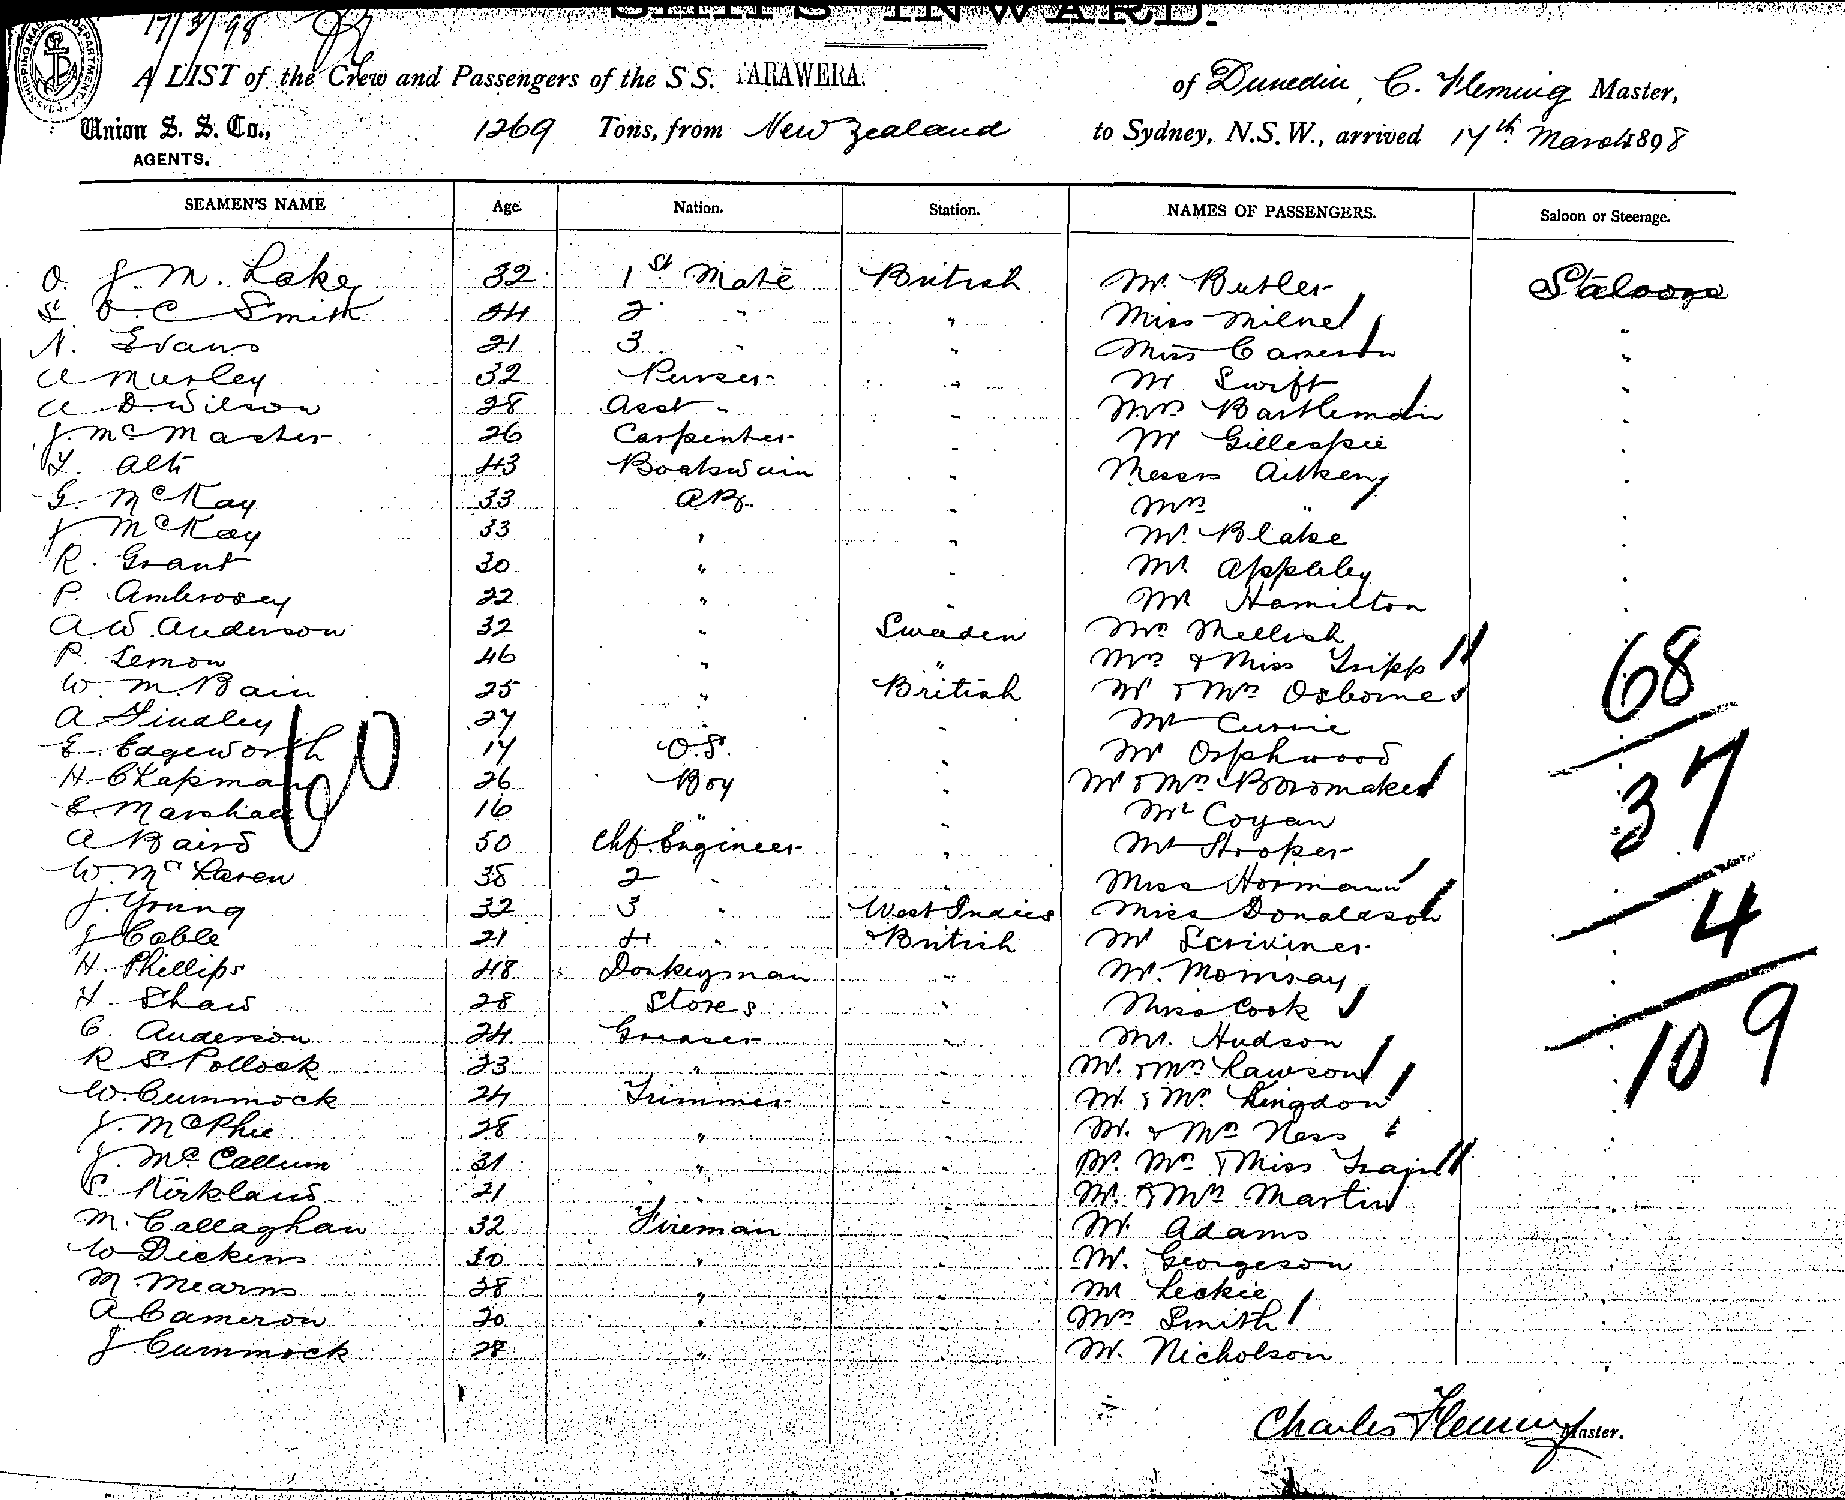 SHIPS INWARD.
17/3/98
A LIST of the Crew and Passengers of the S S. TARAWERA. of Dunedin, C. Fleming Master,
Union S. S. Co., 1269 Tons, from New Zealand to Sydney, N.S.W., arrived 17th March 1898
AGENTS.
SEAMEN'S NAME Age. Nation. Station. NAMES OF PASSENGERS. Saloon or Steerage.
J. M. Lake 32 1st Mate British Mr. Butler Saloon
C Smith 24 2 " " Miss Milne "
N. Evans 21 3 " " Miss Cameron "
A Murley 32 Purser " Mr Swift "
A D. Wilson 28 Asst " " Mrs Bartleman "
J. McMaster 26 Carpenter " Mr Gillespie "
Alti 43 Boatswain " Messrs Aitken "
G. McKay 33 AB. " Mrs " "
J. McKay 33 " " Mr. Blake "
R. Grant 30 " " Mr. Appleby "
P. Ambrosey 22 " " Mr Hamilton "
A. W. Anderson 32 " Sweden Mrs Mellish
P. Lemon 46 " " Mrs & Miss Tripp 68
W. M. Bain 25 " British Mr & Mrs Osborne
A Findley 27 " " Mr Currie
E. Edgeworth 17 O.S. " Mr Orphwood
H. Chapman 26 Boy " Mr & Mrs Boromaker 37
E. Marshall 16 " " Mr Coyan
60
A Baird 50 Chf. Engineer " Mr Hooper
W. McLaren 38 2 " " Miss Hormann
J. Young 32 3 " West Indies Miss Donaldson 4
J Cable 21 4 " British Mr Scriviner
H. Phillips 48 Donkeyman " Mr. Momsay
H. Shaw 28 Stores " Miss Cook
C. Anderson 24 Greaser " Mr. Hudson 109
R S. Pollock 23 " " Mr. & Mrs Lawson
W. Cummock 24 Trimmer " Mr. & Mrs Kingdon
J. McPhee 28 " " Mr. & Mrs Ness
J. McCallum 31 " " Mr. Mrs & Miss
C. Kirkland 21 " " Mr. & Mrs Martin
M. Callaghan 32 Fireman " Mr. Adams
W Dickens 30 " " Mr. Georgeson
M. Mearns 28 " " Mr Leckie
A Cameron 20 " " Mrs Smith
J Cummock 28 " " Mr. Nicholson
Charles Fleming Master.